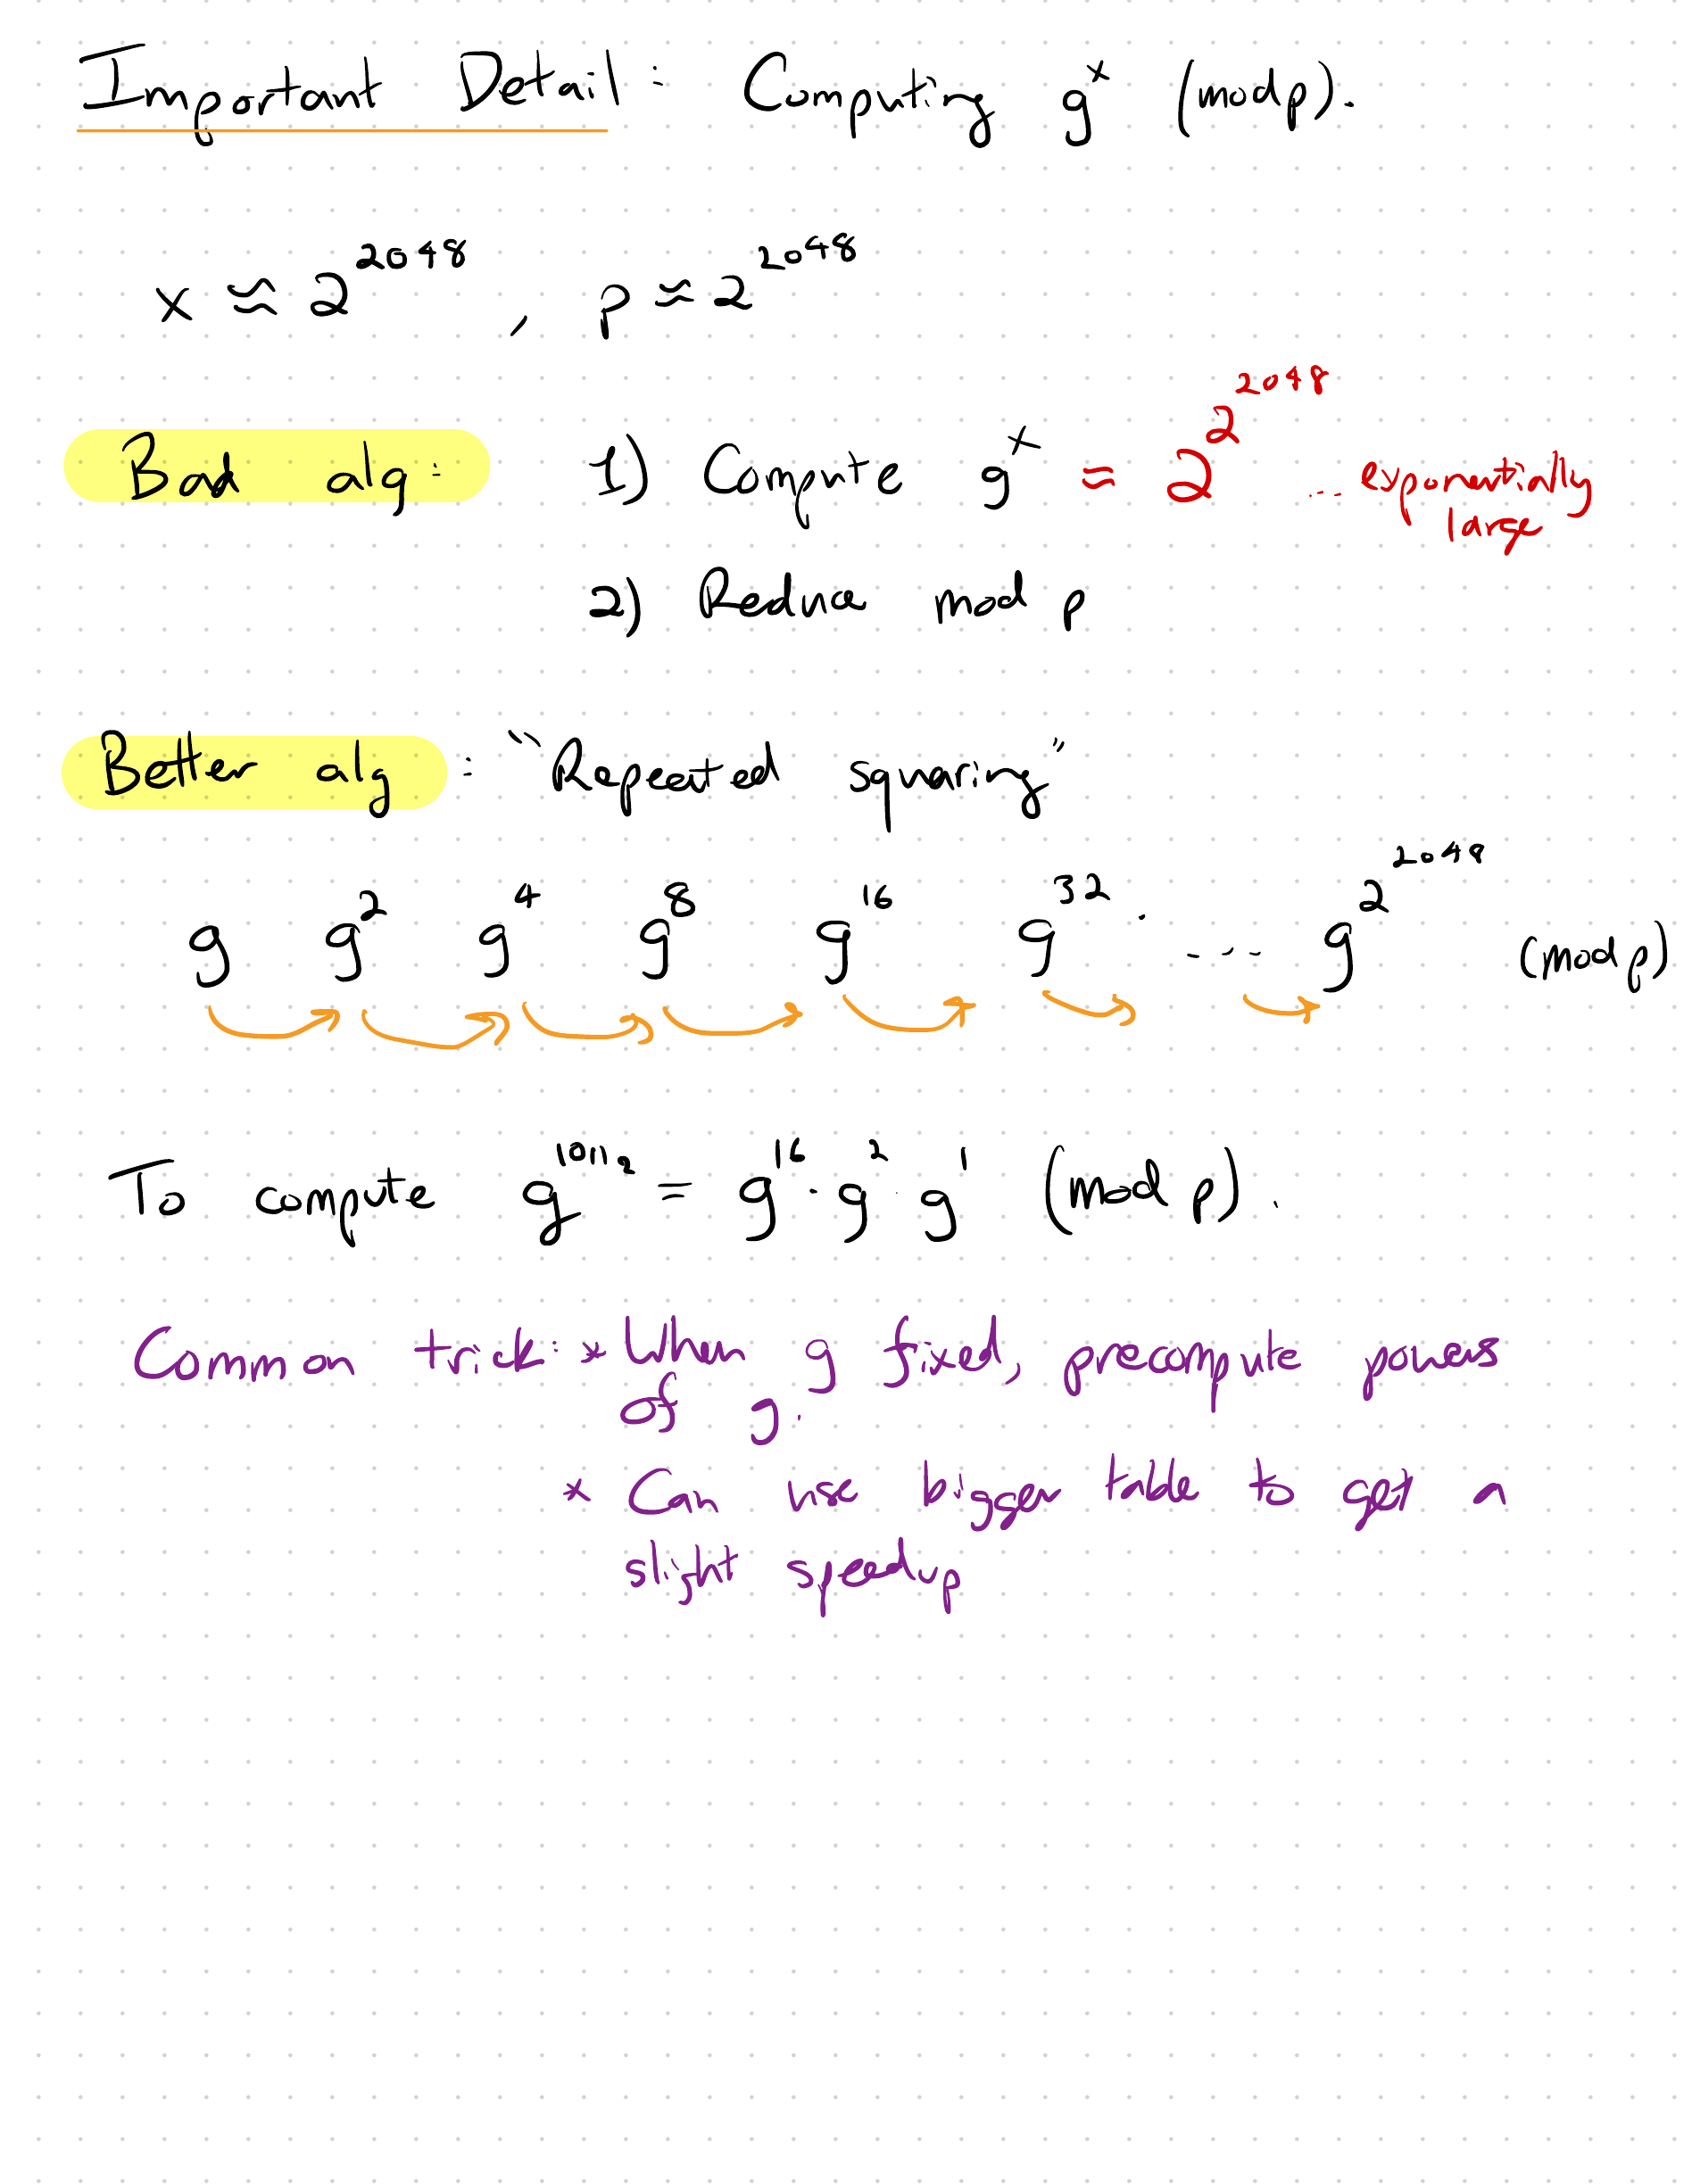 Important Detail: Computing g^x (mod p).
x ≈ 2^2048, p ≈ 2^2048
Bad alg: 1) Compute g^x ≈ 2^2^2048 ... exponentially
large
2) Reduce mod p
Better alg: "Repeated squaring"
g g^2 g^4 g^8 g^16 g^32 ... g^2^2048 (mod p)
To compute g^1011₂ = g^16 · g^2 · g^1 (mod p).
Common trick: * When g fixed, precompute powers
of g.
* Can use bigger table to get a
slight speedup